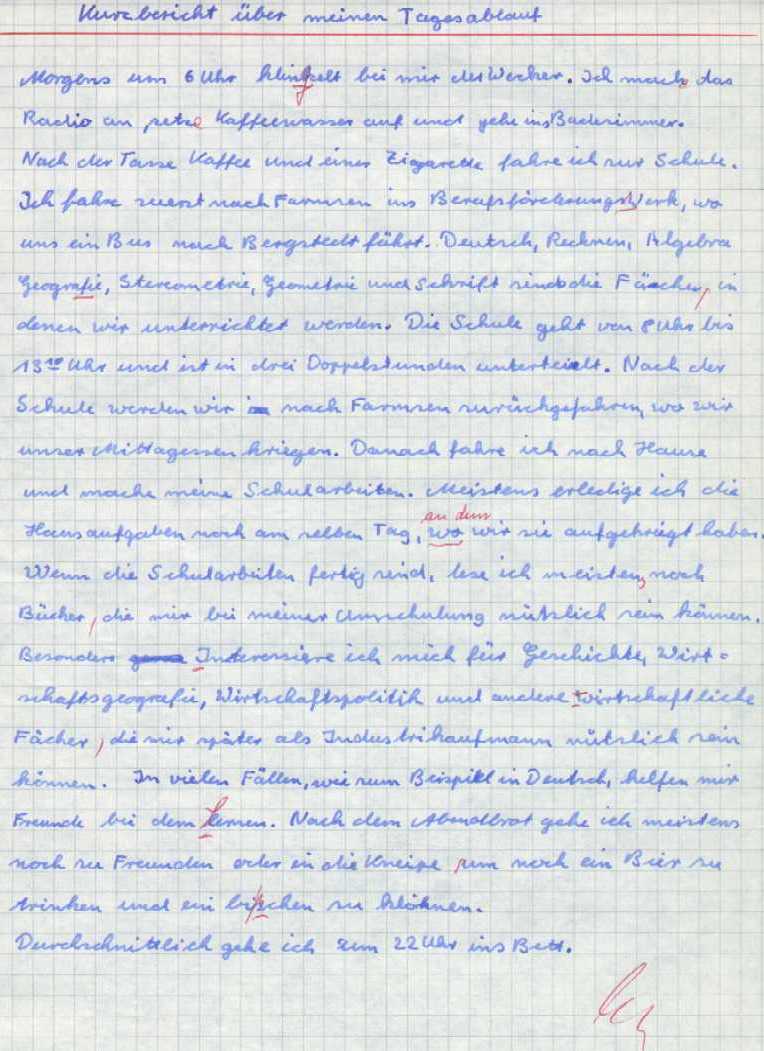 Kurzbericht über meinen Tagesablauf
Morgens um 6 Uhr klingelt bei mir der Wecker. Ich mache das
Radio an, setze Kaffeewasser auf und gehe ins Badezimmer.
Nach der Tasse Kaffee und einer Zigarette fahre ich zur Schule.
Ich fahre zuerst nach Farmsen ins Berufsförderungswerk, wo
uns ein Bus nach Bergstedt fährt. Deutsch, Rechnen, Algebra
Geografie, Stereometrie, Geometrie und Schrift sind die Fächer, in
denen wir unterrichtet werden. Die Schule geht von 8 Uhr bis
13¹⁰ Uhr und ist in drei Doppelstunden unterteilt. Nach der
Schule werden wir nach Farmsen zurückgefahren, wo wir
unser Mittagessen kriegen. Danach fahre ich nach Hause
und mache meine Schularbeiten. Meistens erledige ich die
an dem
Hausaufgaben noch am selben Tag, wo wir sie aufgekriegt haben.
Wenn die Schularbeiten fertig sind, lese ich meistens noch
Bücher, die mir bei meiner Umschulung nützlich sein können.
Besonders Interessiere ich mich für Geschichte, Wirt-
schaftsgeografie, Wirtschaftspolitik und andere wirtschaftliche
Fächer, die mir später als Industrikaufmann nützlich sein
können. In vielen Fällen, wie zum Beispiel in Deutsch, helfen mir
Freunde bei dem Lernen. Nach dem Abendbrot gehe ich meistens
noch zu Freunden oder in die Kneipe, um noch ein Bier zu
trinken und ein bißchen zu klöhnen.
Durchschnittlich gehe ich um 22 Uhr ins Bett.